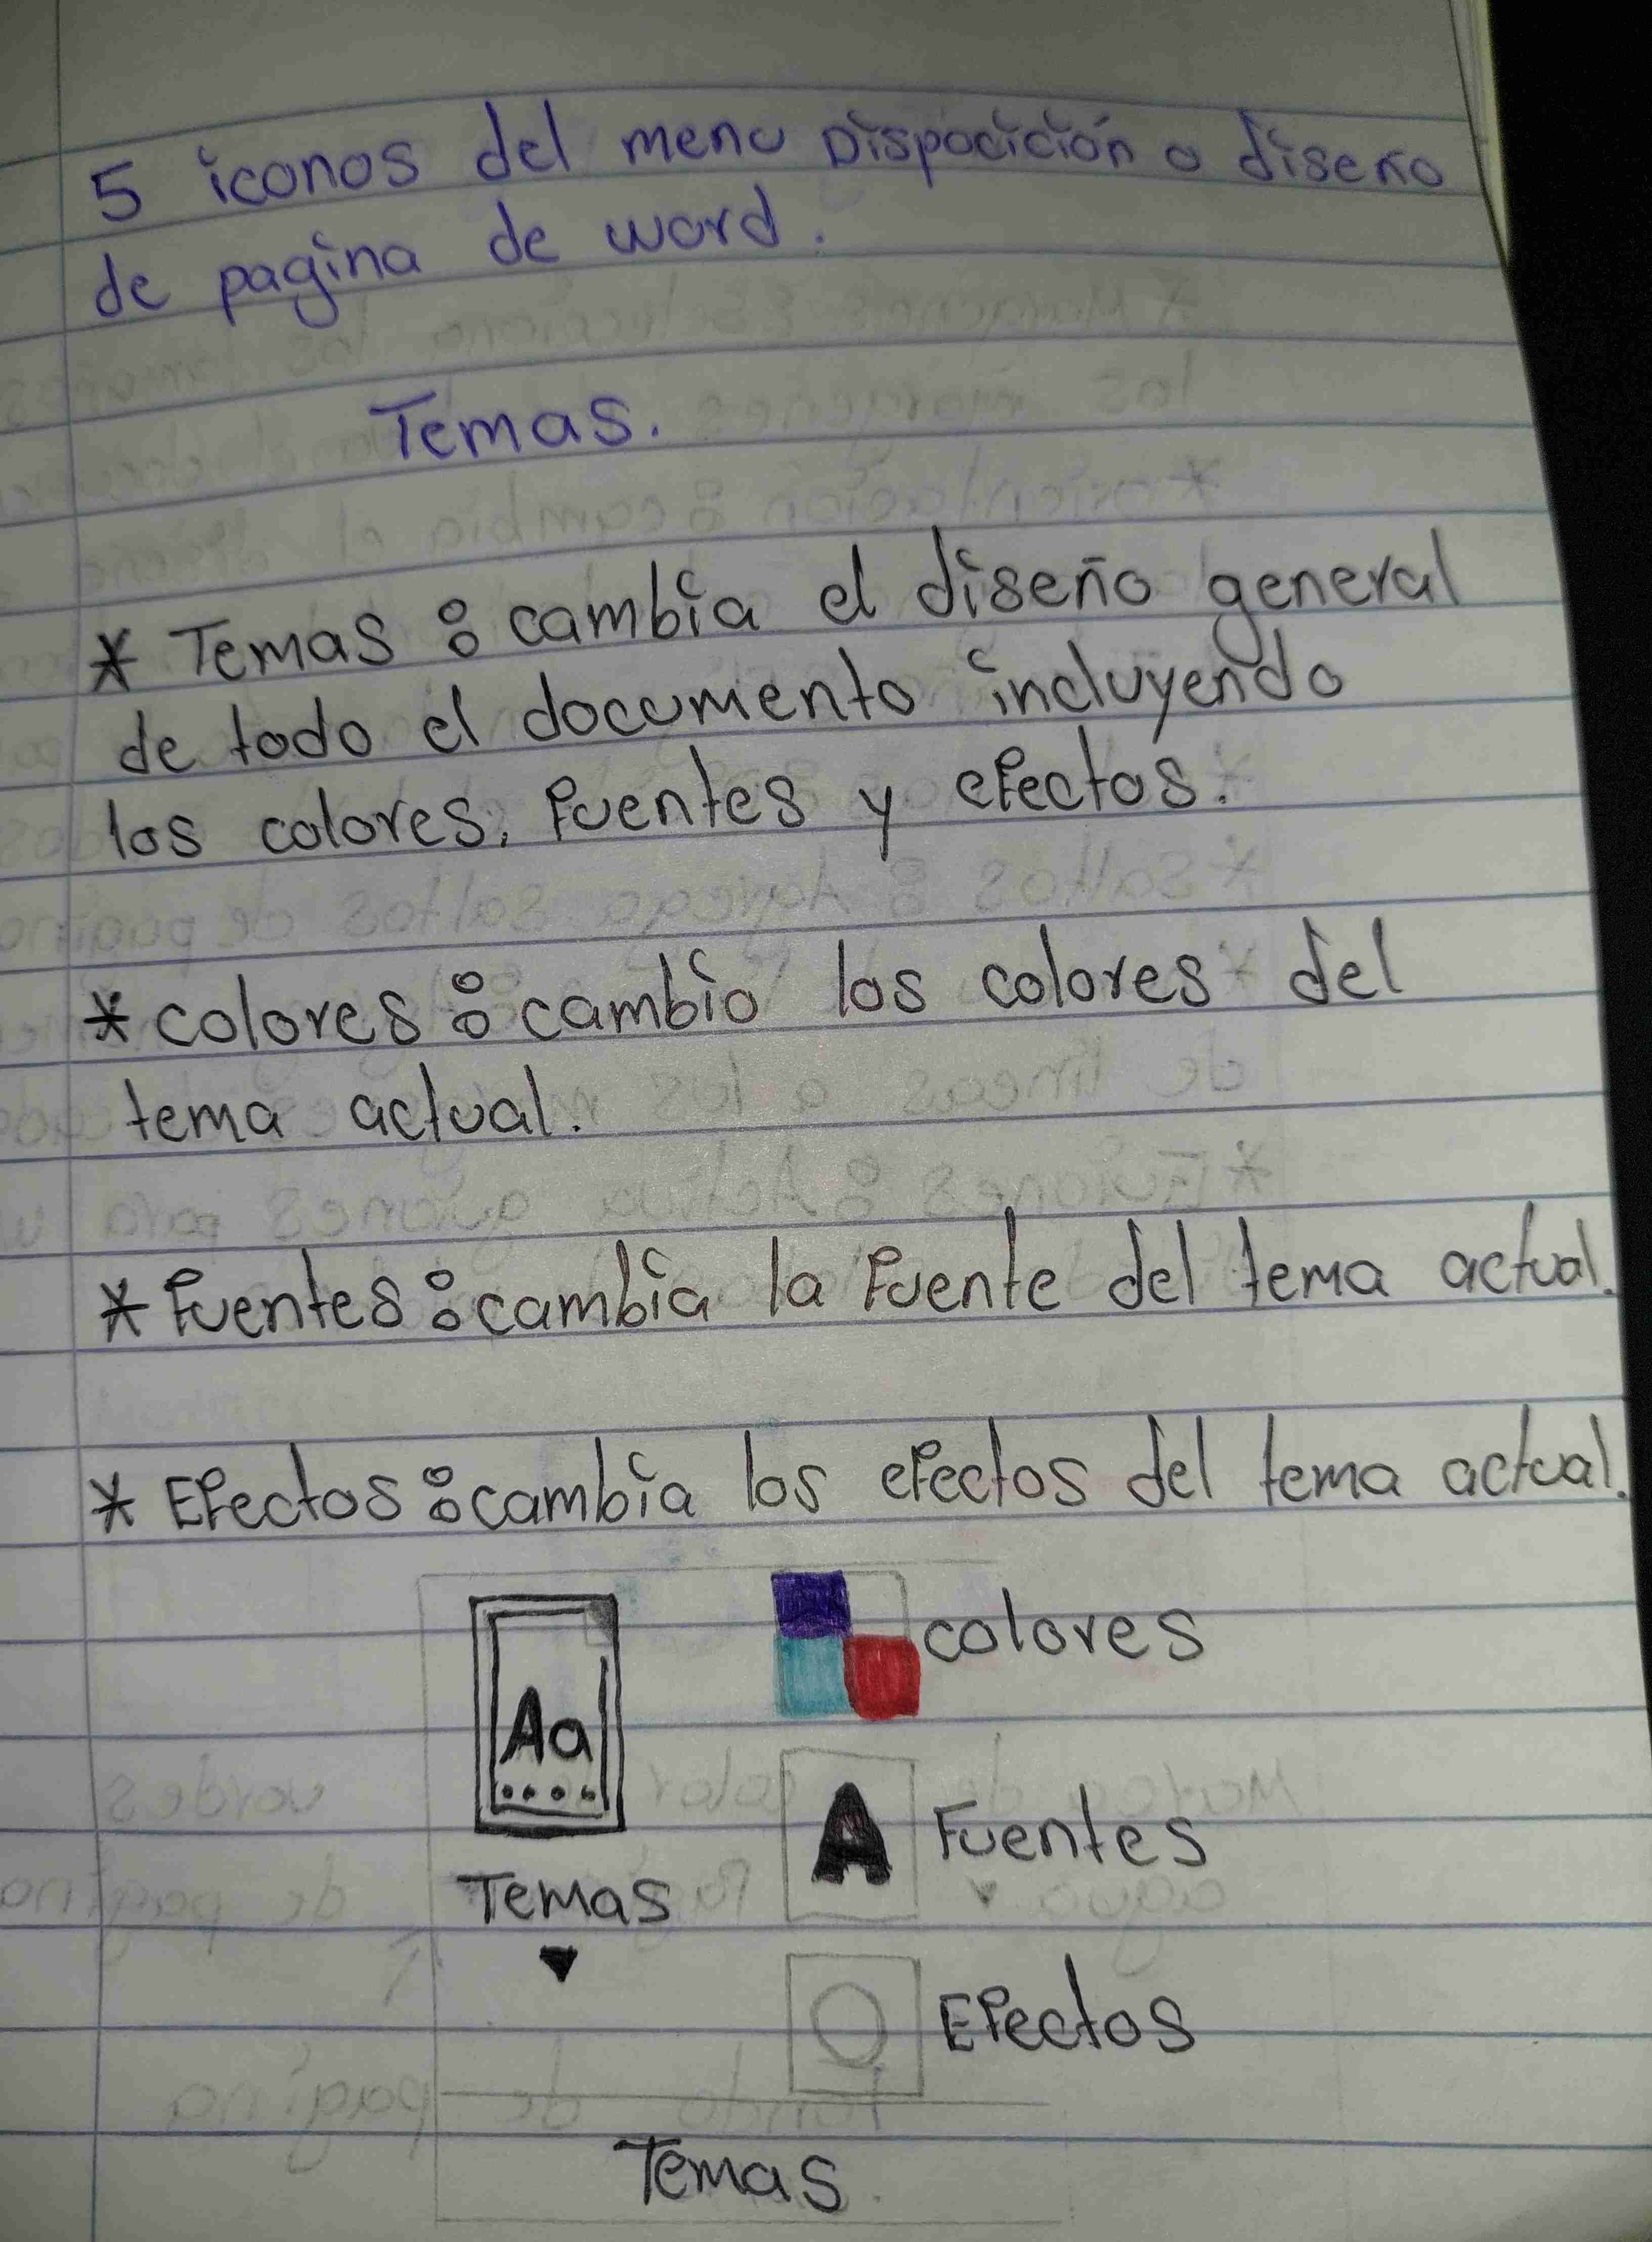 5 iconos del menu Dispocición o diseño
de pagina de word.
Temas.
* Temas : cambia el diseño general
de todo el documento incluyendo
los colores, fuentes y efectos.
* colores : cambio los colores del
tema actual.
* fuentes : cambia la fuente del tema actual.
* Efectos : cambia los efectos del tema actual.
Aa
Temas
colores
A Fuentes
Efectos
Temas.